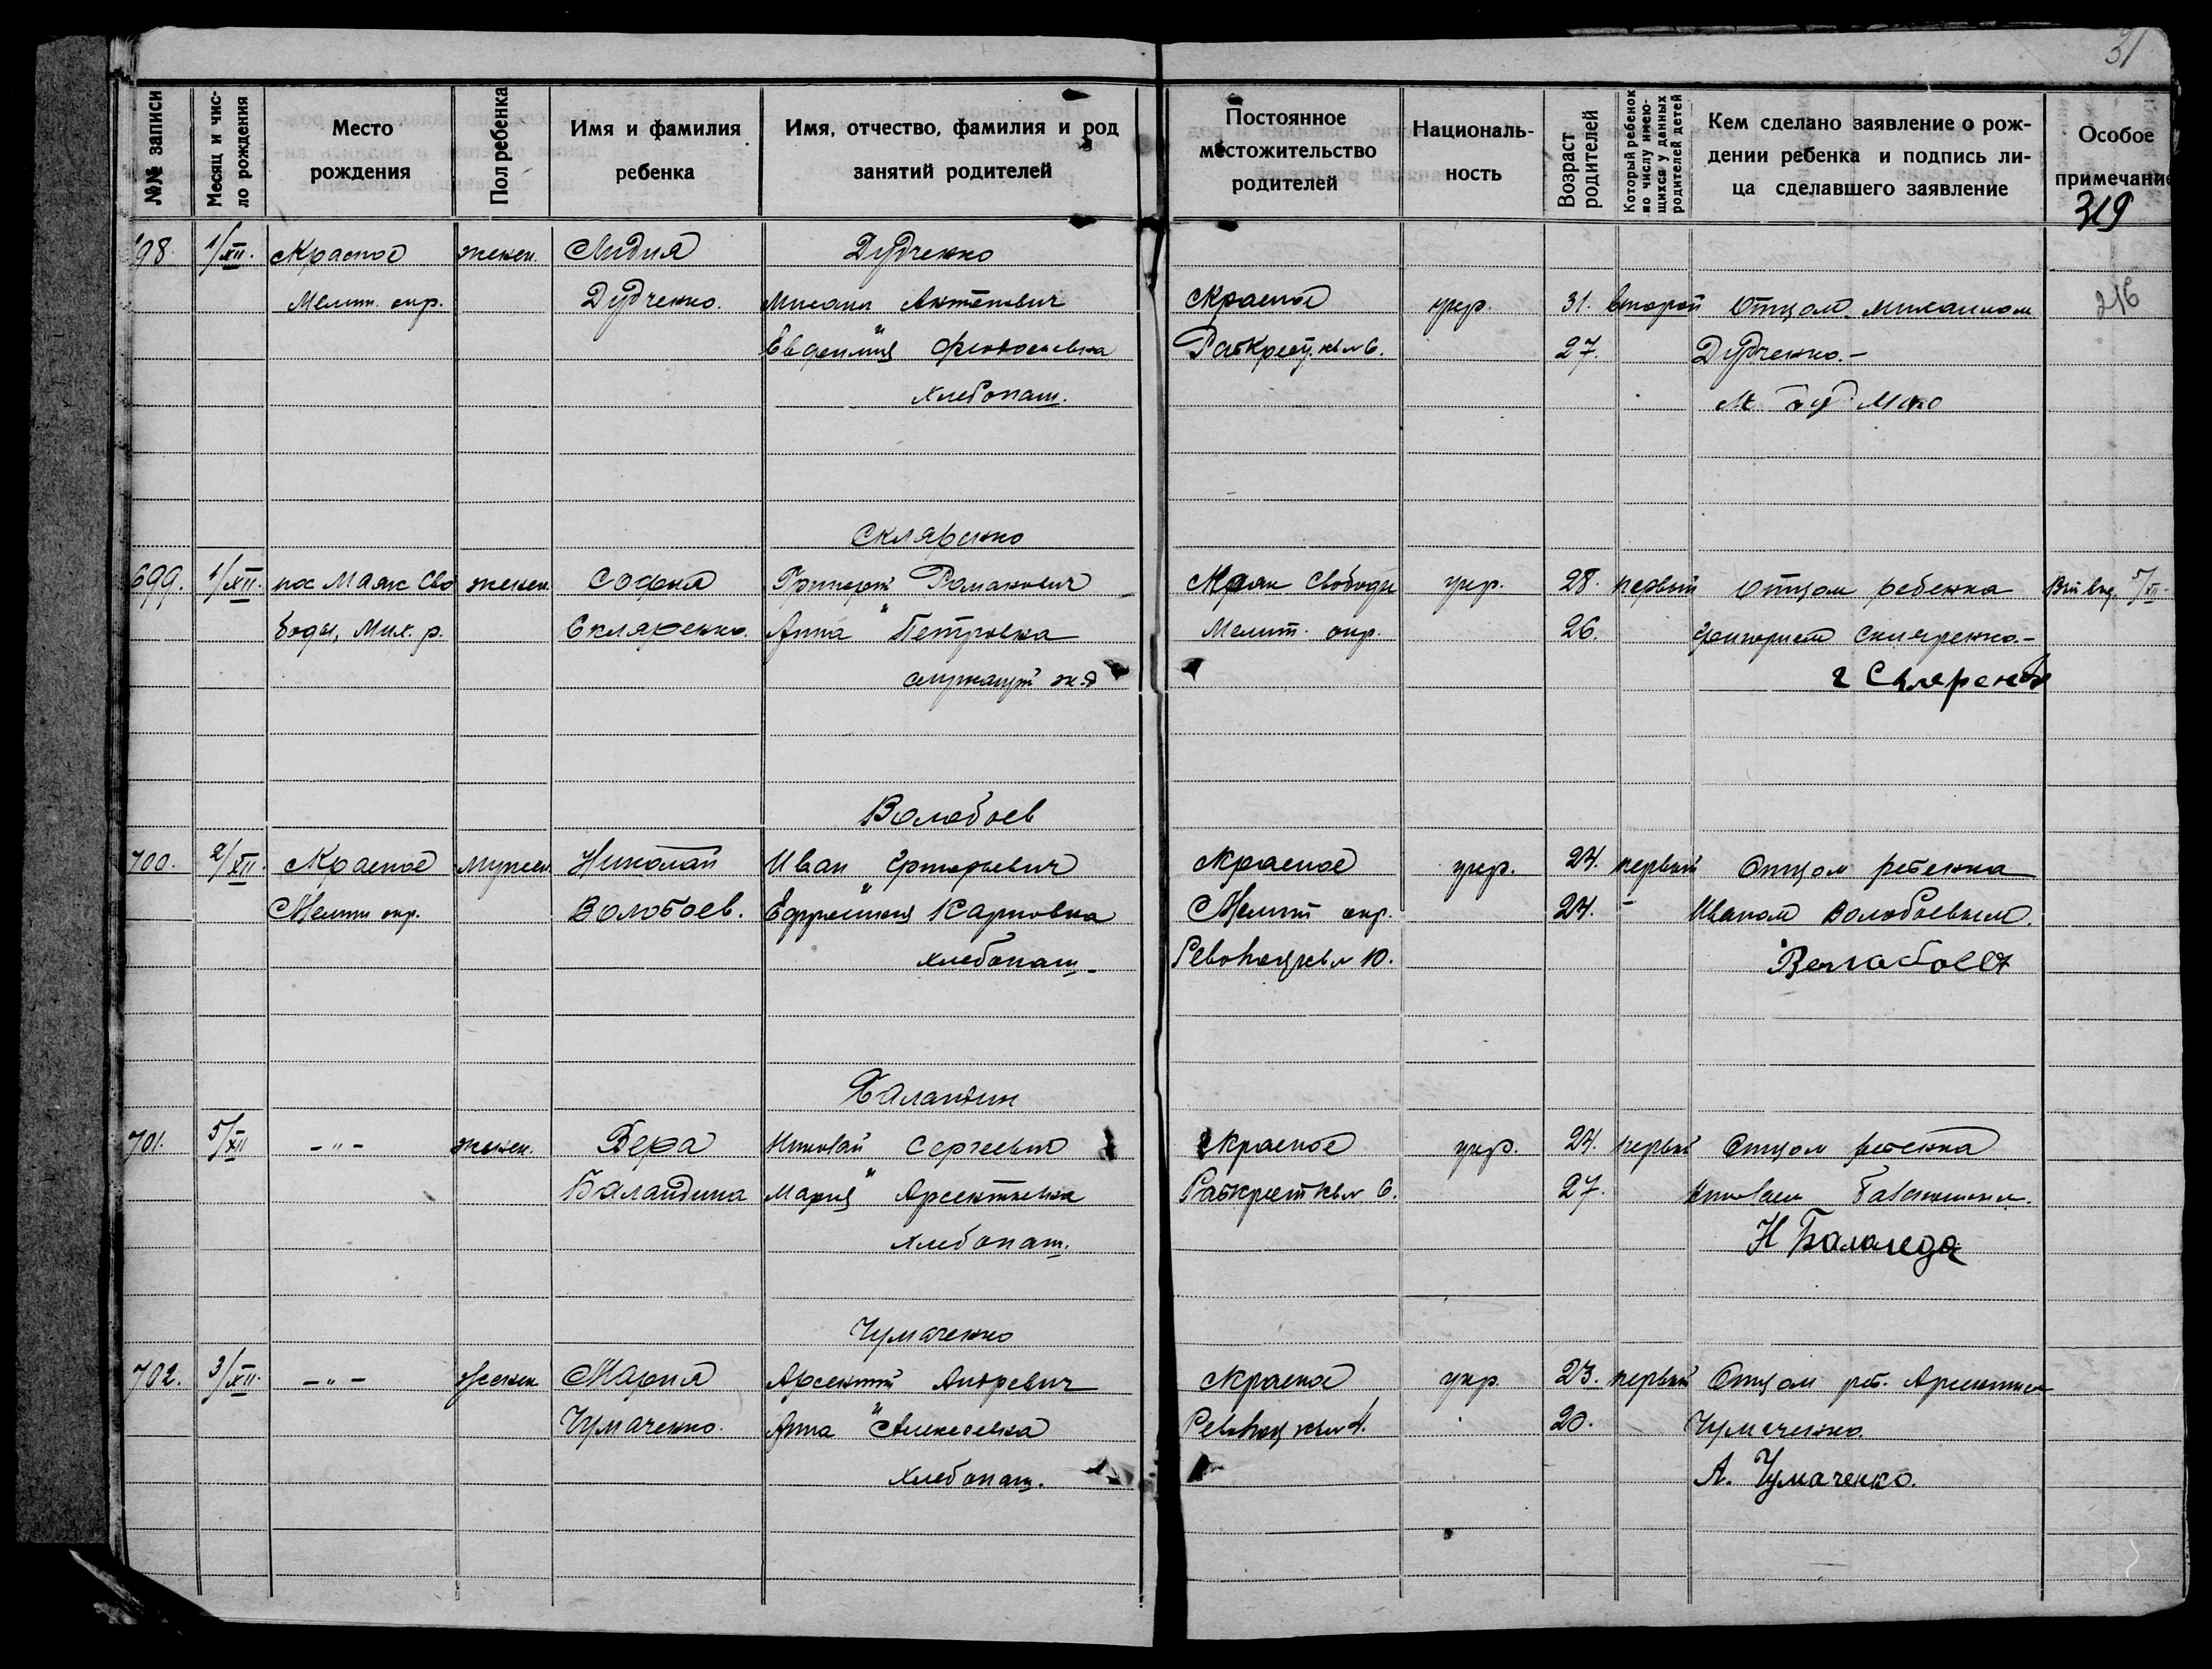 31
№№ записи
Месяц и чис-
ло рождения
Место
рождения
Пол ребенка
Имя и фамилия
ребенка
Имя, отчество, фамилия и род
занятий родителей
Постоянное
местожительство
родителей
Националь-
ность
Возраст
родителей
Который ребенок
по числу имею-
щихся у данных
родителей детей
Кем сделано заявление о рож-
дении ребенка и подпись ли-
ца сделавшего заявление
Особое
примечание
319
98. 1/XII. Красное женск. Лидия Дудченко
Мелит. окр. Дудченко. Михаил Красное укр. 31. второй Отцом Михаилом 216
Евдокия 27. Дудченко.-
хлебопаш.
Скляренко
699. 1/XII. пос Маяк Сво женск. София Григорий Романович Маяк Свободы укр. 28. первый Отцом ребенка 5/XII
боды, Мих. р. Скляренко. Анна " Петровна Мелит. окр. 26. Григорием Скляренко.-
служащий ж.д Г Скляренко
Волобоев
700. 2/XII. Красное мужск Николай Иван Григорьевич Красное укр. 24. первый Отцом ребенка
Мелит окр. Волобоев. " Карповна Мелит окр. 24. - Иваном Волобоевым.
хлебопаш- 10.
Баландин
701. 5/XII - " - женск. Вера Николай Сергеевич Красное укр. 24. первый Отцом ребенка
Баландина Мария " Арсентьевна 6. 27. Николаем
хлебопаш. Н Баланда
Чумаченко
702. 3/XII. - " - женск Мария Арсентий Андревич Красное укр. 23. первый Отцом реб. Арсентием
Чумаченко. Анна " Алексеевна 4. 20. Чумаченко.
хлебопаш. А. Чумаченко.